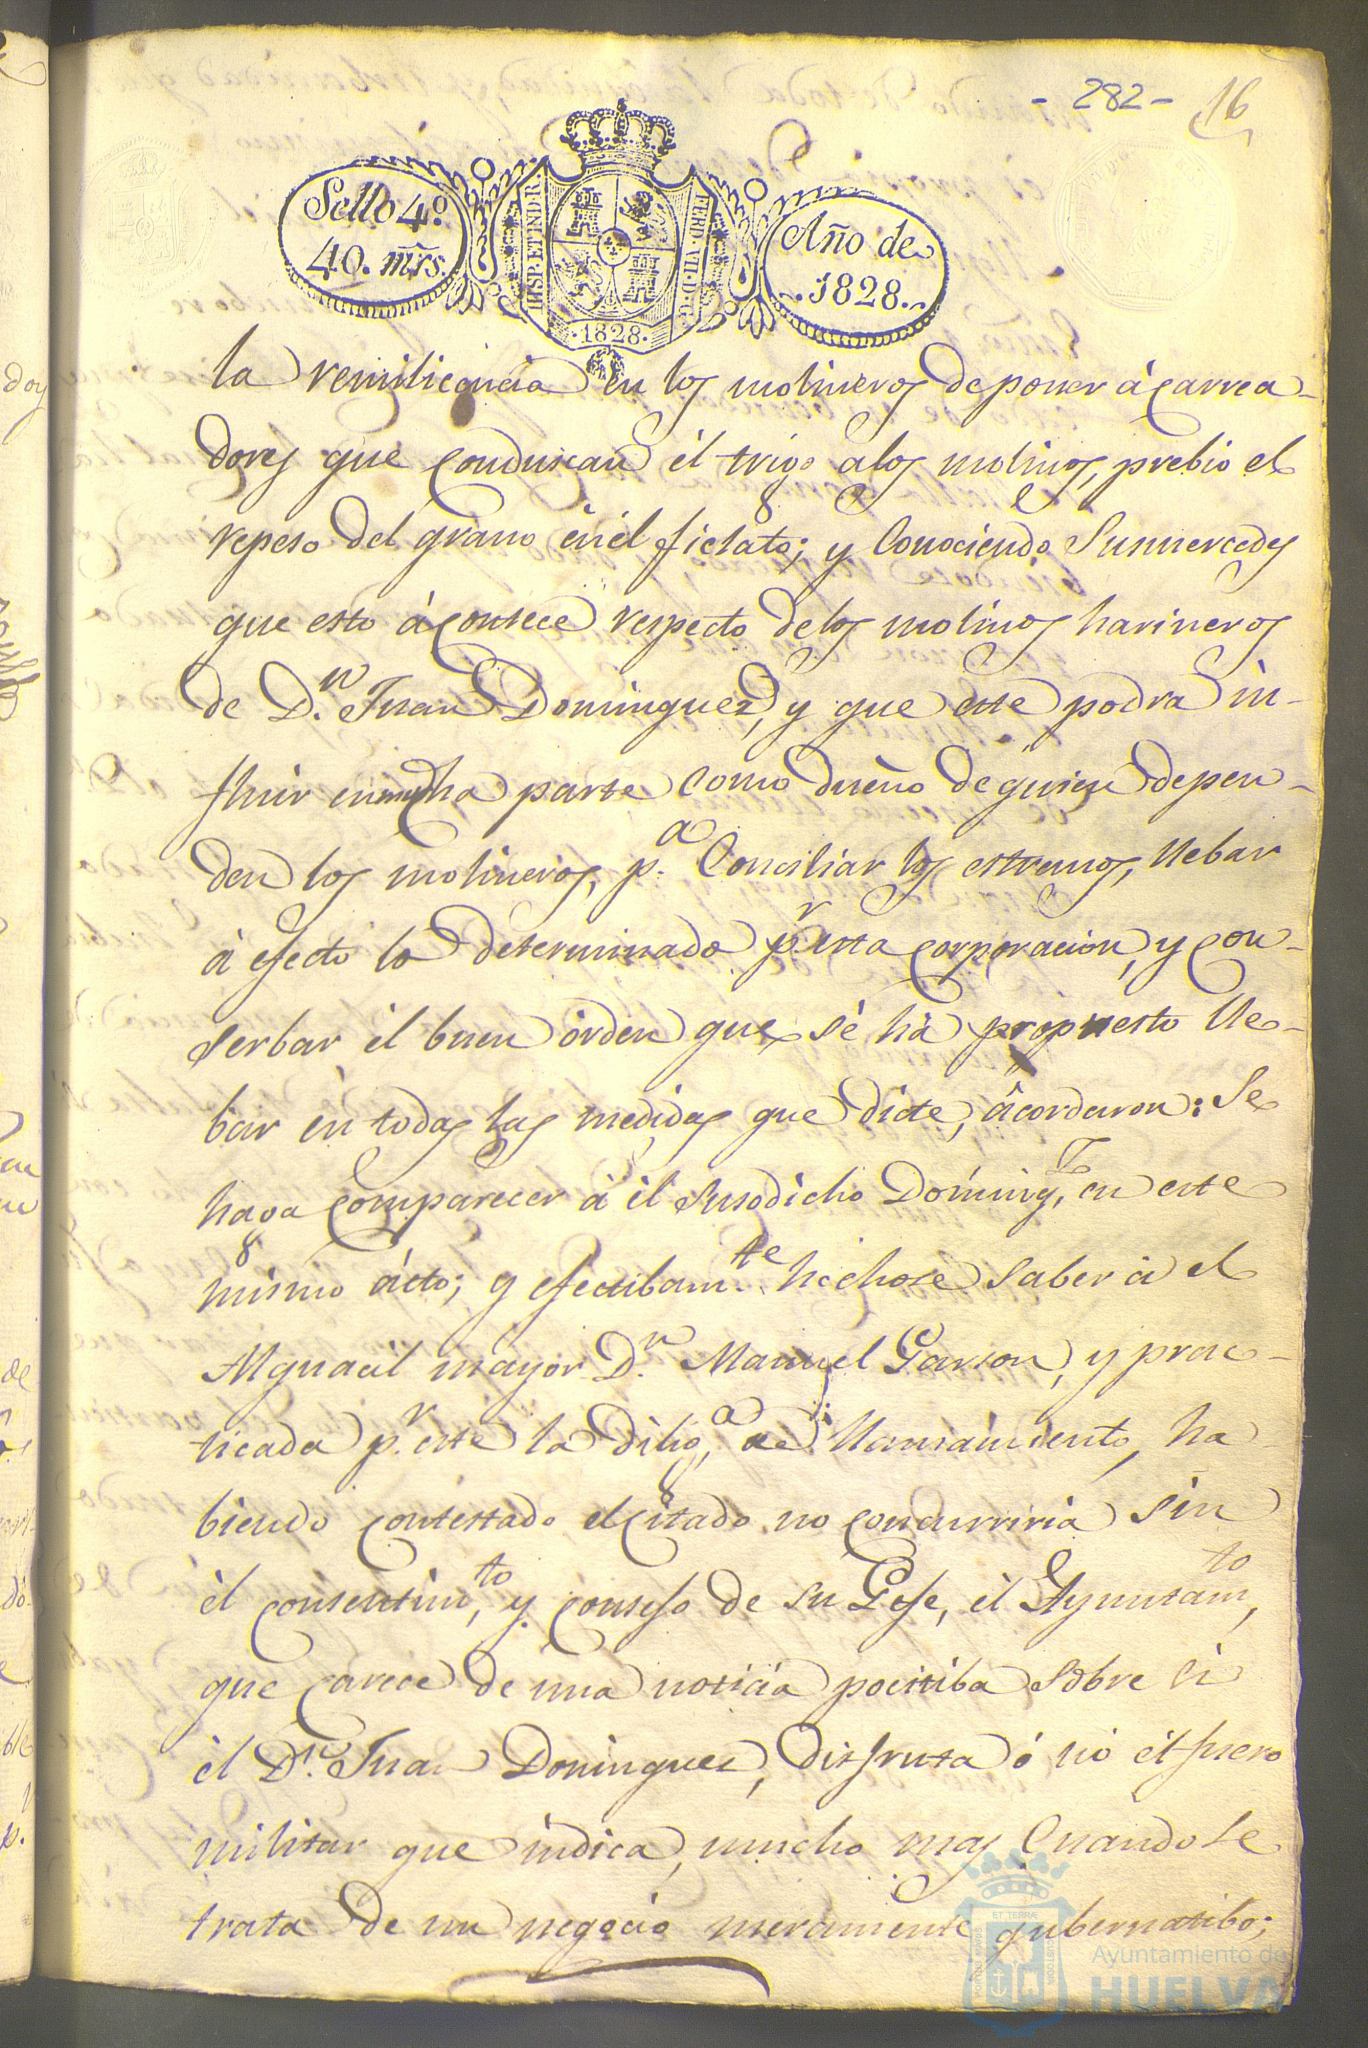 - 282 - 16
Sello 4.º
40. mrs.
HISP. ET IND. R.
FERD. VII. D. G.
·1828·
Año de
1828.
la remiticencia en los molineros de poner á carrea-
dores que conduscan él trigo a los molinos, prebio el
repeso del grano én él fielato; y conociendo Sus mercedes
que esto ácontece respecto de los molinos harineros
de D.n Juan Dominguez, y que este podra in-
fluir en mucha parte como dueño de quien depen-
den los molineros, p.a conciliar los estremos, llebar
á efecto lo determinado p.r esta corporacion, y con-
serbar él buen órden que sé há propuesto lle-
bar én todas las medidas que dicte, ácordaron: Se
haga comparecer á él susodicho Doming.z en este
mismo ácto; y efectibam.te hichose saber á el
Alguacil mayor D.n Manuel Garson, y prac-
ticada p.r este la dilig.a de llamamiento, ha
biendo contestado el citado no concurriria sin
él consentim.to y consejo de su Gefe, él Ayuntam.to,
que carece de una noticia pocitiba sobre si
él D.n Juan Dominguez, disfruta ó nó él fuero
militar que indica, mucho mas cuando se
trata de un negocio meramente gubernatibo;
Ayuntamiento de
HUELVA